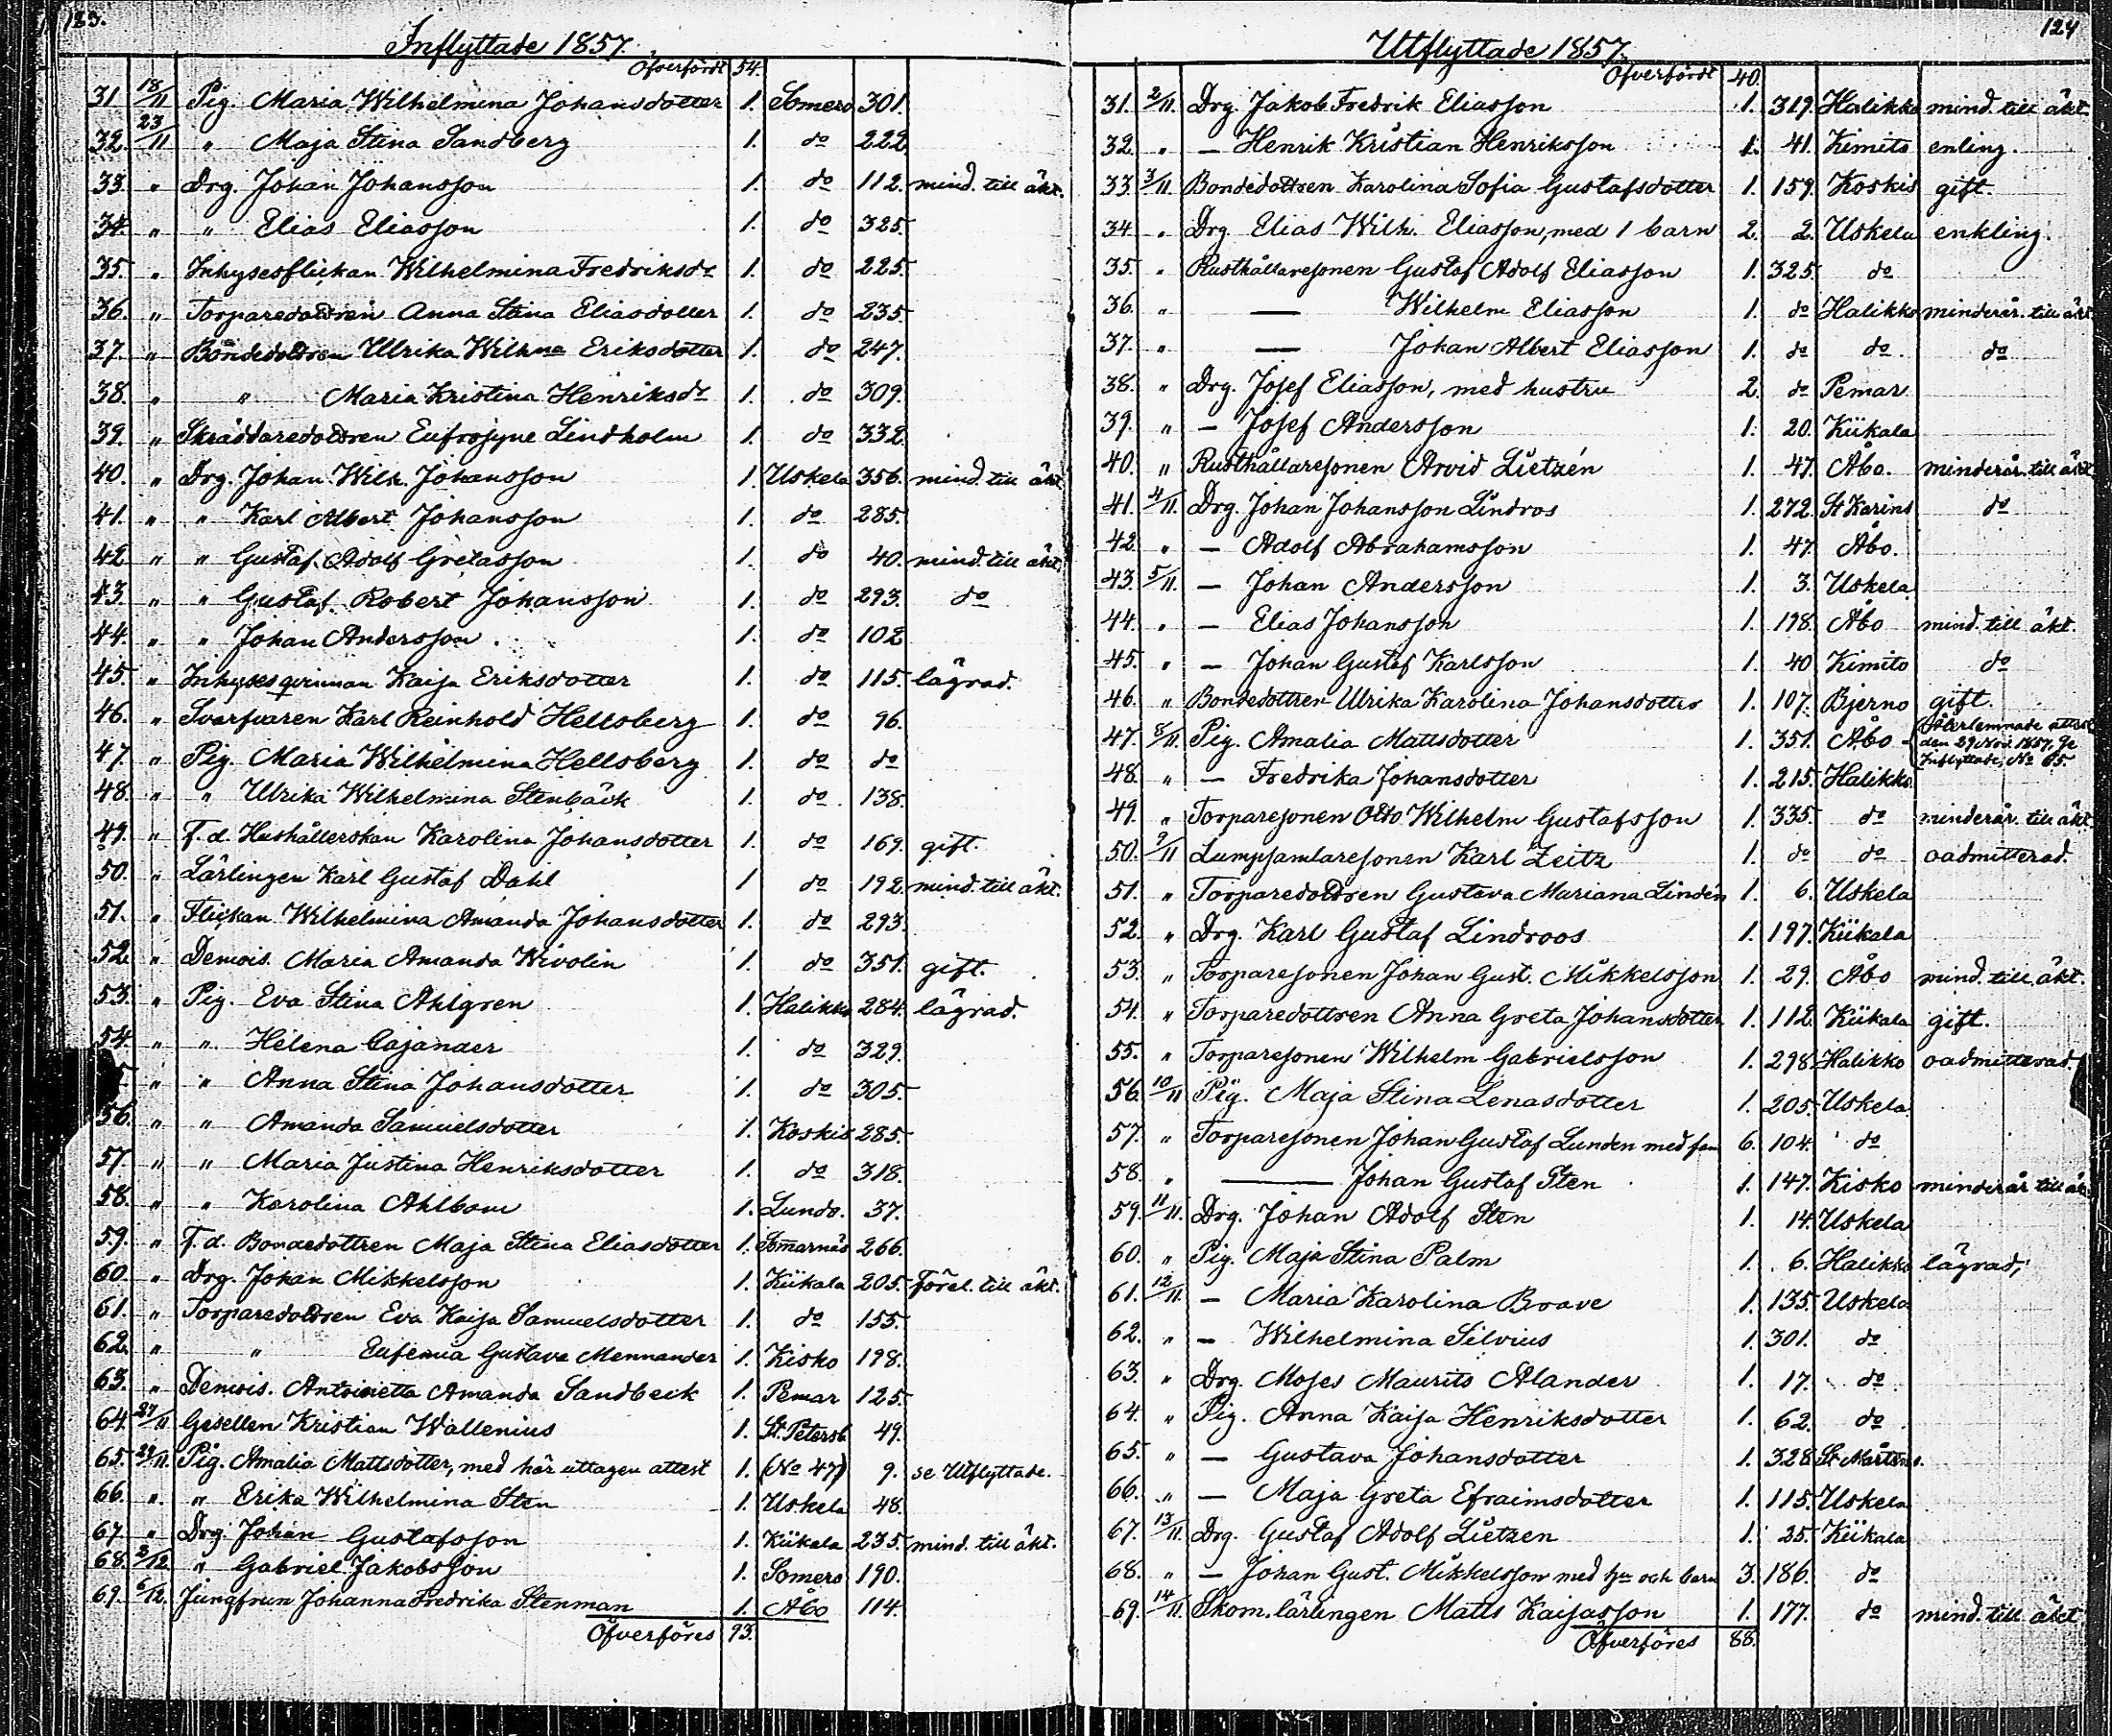 123.
Inflyttade 1857.
Öfverfördt 54.
31 18/11 Pig. Maria Wilhelmina Johansdotter 1. Somero 301.
32. 23/11 " Maja Stina Sandberg 1. do 222.
33. " Drg. Johan Johansson 1. do 112. mind. till äkt.
34. " " Elias Eliasson 1. do 325.
35. " Inhysesflickan Wilhelmina Fredriksdr 1. do 225.
36. " Torparedottren Anna Stina Eliasdotter 1. do 235.
37. " Bondedottren Ulrika Wilhna Eriksdotter 1. do 247.
38. " " Maria Kristina Henriksdr 1. do 309.
39. " Skräddaredottren Eufrosyne Lindholm 1. do 332.
40. " Drg. Johan Wilh. Johansson 1. Uskela 356. mind. till äkt.
41. " " Karl Albert Johansson 1. do 285.
42. " " Gustaf Adolf Gretasson 1. do 40. mind. till äkt.
43. " " Gustaf Robert Johansson 1. do 293. do
44. " " Johan Andersson 1. do 102
45. " Inhysesqvinnan Kaija Eriksdotter 1. do 115. lägrad.
46. " Svarfvaren Karl Reinhold Hellsberg 1. do 96.
47. " Pig. Maria Wilhelmina Hellsberg 1. do do
48. " " Ulrika Wilhelmina Stenbäck 1. do 138.
49. " F. d. Hushållerskan Karolina Johansdotter 1. do 169. gift.
50. " Lärlingen Karl Gustaf Dahl 1 do 192. mind. till äkt.
51. " Flickan Wilhelmina Amanda Johansdotter 1. do 293.
52. " Demois. Maria Amanda Wivolin 1. do 351. gift.
53. " Pig. Eva Stina Ahlgren 1. Halikko 284. lägrad.
54. " " Helena Cajander 1. do 329.
" " Anna Stina Johansdotter 1. do 305.
56. " " Amanda Samuelsdotter 1. Koskis 285.
57. " " Maria Justina Henriksdotter 1. do 318.
58. " " Karolina Ahlbom 1. Lundo. 37.
59. " F. d. Bondedottren Maja Stina Eliasdotter 1. Somarnäs 266.
60. " Drg. Johan Mikkelsson 1. Kiikala 205. förel. till äkt.
61. " Torparedottren Eva Kaija Samuelsdotter 1. do 155.
62. " " Eufemia Gustava Mennander 1. Kisko 198.
63. " Demois. Antoinetta Amanda Sandbeck 1. Pemar 125.
64. 27/11 Gesellen Kristian Wallenius 1. St. Petersb. 49.
65. 29/11 Pig. Amalia Mattsdotter, med här uttagen attest 1. (No 47) 9. se Utflyttade.
66. " " Erika Wilhelmina Sten 1. Uskela 48.
67. " Drg. Johan Gustafsson 1. Kiikala 235. mind. till äkt.
68. 2/12. " Gabriel Jakobsson 1. Somero 190.
69. 6/12. Jungfrun Johanna Fredrika Stenman 1. Åbo 114.
Öfverföres 93.
124
Utflyttade 1857.
Öfverfördt 40.
31. 2/11. Drg. Jakob Fredrik Eliasson 1. 319. Halikko mind. till äkt.
32. " — Henrik Kristian Henriksson 1. 41. Kimito enling.
33. 3/11. Bondedottren Karolina Sofia Gustafsdotter 1. 159. Koskis gift.
34. " Drg Elias Wilh. Eliasson, med 1 barn 2. 2. Uskela enkling.
35. " Rusthållaresonen Gustaf Adolf Eliasson 1. 325. do
36. " — Wilhelm Eliasson 1. do Halikko minderår. till äkt
37. " — Johan Albert Eliasson 1. do do do
38. " Drg. Josef Eliasson, med hustru 2. do Pemar
39. " — Josef Andersson 1. 20. Kiikala
40. " Rusthållaresonen Arvid Lietzén 1. 47. Åbo. minderår. till äkt
41. 4/11. Drg. Johan Johansson Lindros 1. 272. St Karins do
42. " — Adolf Abrahamsson 1. 47. Åbo.
43. 5/11 — Johan Andersson 1. 3. Uskela
44. " — Elias Johansson 1. 198. Åbo mind. till äkt.
45. " — Johan Gustaf Karlsson 1. 40 Kimito do
46. " Bondedottren Ulrika Karolina Johansdotter 1. 107. Bjerno gift.
47. 8/11. Pig. Amalia Mattsdotter 1. 351. Åbo – (Återlemnade attest
den 29 Nov. 1857. Se
Inflyttade, No 65.
48. " — Fredrika Johansdotter 1. 215. Halikko.
49. " Torparesonen Otto Wilhelm Gustafsson 1. 335. do minderår. till äkt.
50. 9/11 Lumpsamlaresonen Karl Zeitz 1. do do oadmitterad.
51. " Torparedottren Gustava Mariana Lindén 1. 6. Uskela
52. " Drg. Karl Gustaf Lindroos 1. 197. Kiikala
53. " Torparesonen Johan Gust. Mikkelsson 1. 29. Åbo mind. till äkt.
54. " Torparedottren Anna Greta Johansdotter 1. 112. Kiikala gift.
55. " Torparesonen Wilhelm Gabrielsson 1. 298. Halikko oadmitterad.
56. 10/11 Pig. Maja Stina Lenasdotter 1. 205. Uskela.
57. " Torparesonen Johan Gustaf Lunden med fam 6. 104. do
58. " — Johan Gustaf Sten 1. 147. Kisko minderår. till äk
59. 11/11. Drg. Johan Adolf Sten 1. 14. Uskela
60. " Pig. Maja Stina Palm 1. 6. Halikko lägrad,
61. 12/11. — Maria Karolina Boave 1. 135. Uskela
62. " — Wilhelmina Silvius 1. 301. do
63. " Drg. Moses Maurits Alander 1. 17. do
64. " Pig. Anna Kaisa Henriksdotter 1. 62. do
65. " — Gustava Johansdotter 1. 328. St Mårtens.
66. " — Maja Greta Efraimsdotter 1. 115. Uskela
67. 13/11. Drg. Gustaf Adolf Lietzen 1. 25. Kiikala
68. " — Johan Gust. Mikkelsson med hu och barn 3. 186. do
69. 14/11. Skom. lärlingen Matts Kaijasson 1. 177. do mind. till äkt
Öfverföres 88.